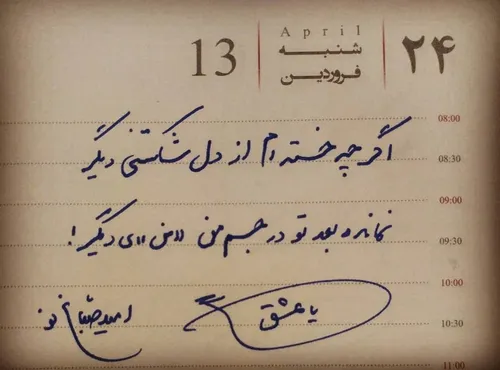 ۲۴
April
شنبه
فروردین
13
08:00
اگر چه خسته ام از دل شکستنی دیگر
08:30
09:00
نمانده بعد تو در جسم من «من»ی دیگر!
09:30
10:00
یا عشق
امید صباغ نو
10:30
11:00